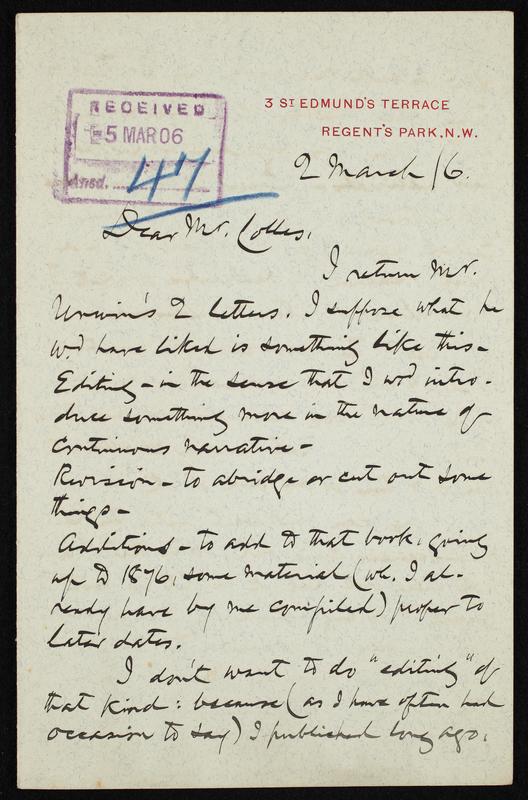 RECEIVED
5 MAR 06
Ansd. 47
3 ST EDMUND'S TERRACE
REGENT'S PARK. N.W.
2 March /6.
Dear Mr. Colles,
I return Mr.
Unwin's 2 letters. I suppose what he
wd have liked is something like this –
Editing – in the sense that I wd intro-
duce something more in the nature of
continuous narrative –
Revision – to abridge or cut out some
things –
Additions – to add to that book, going
up to 1876, some material (wh. I al-
ready have by me compiled) proper to
later dates.
I don't want to do "editing" of
that kind: because (as I have often had
occasion to say) I published long ago,